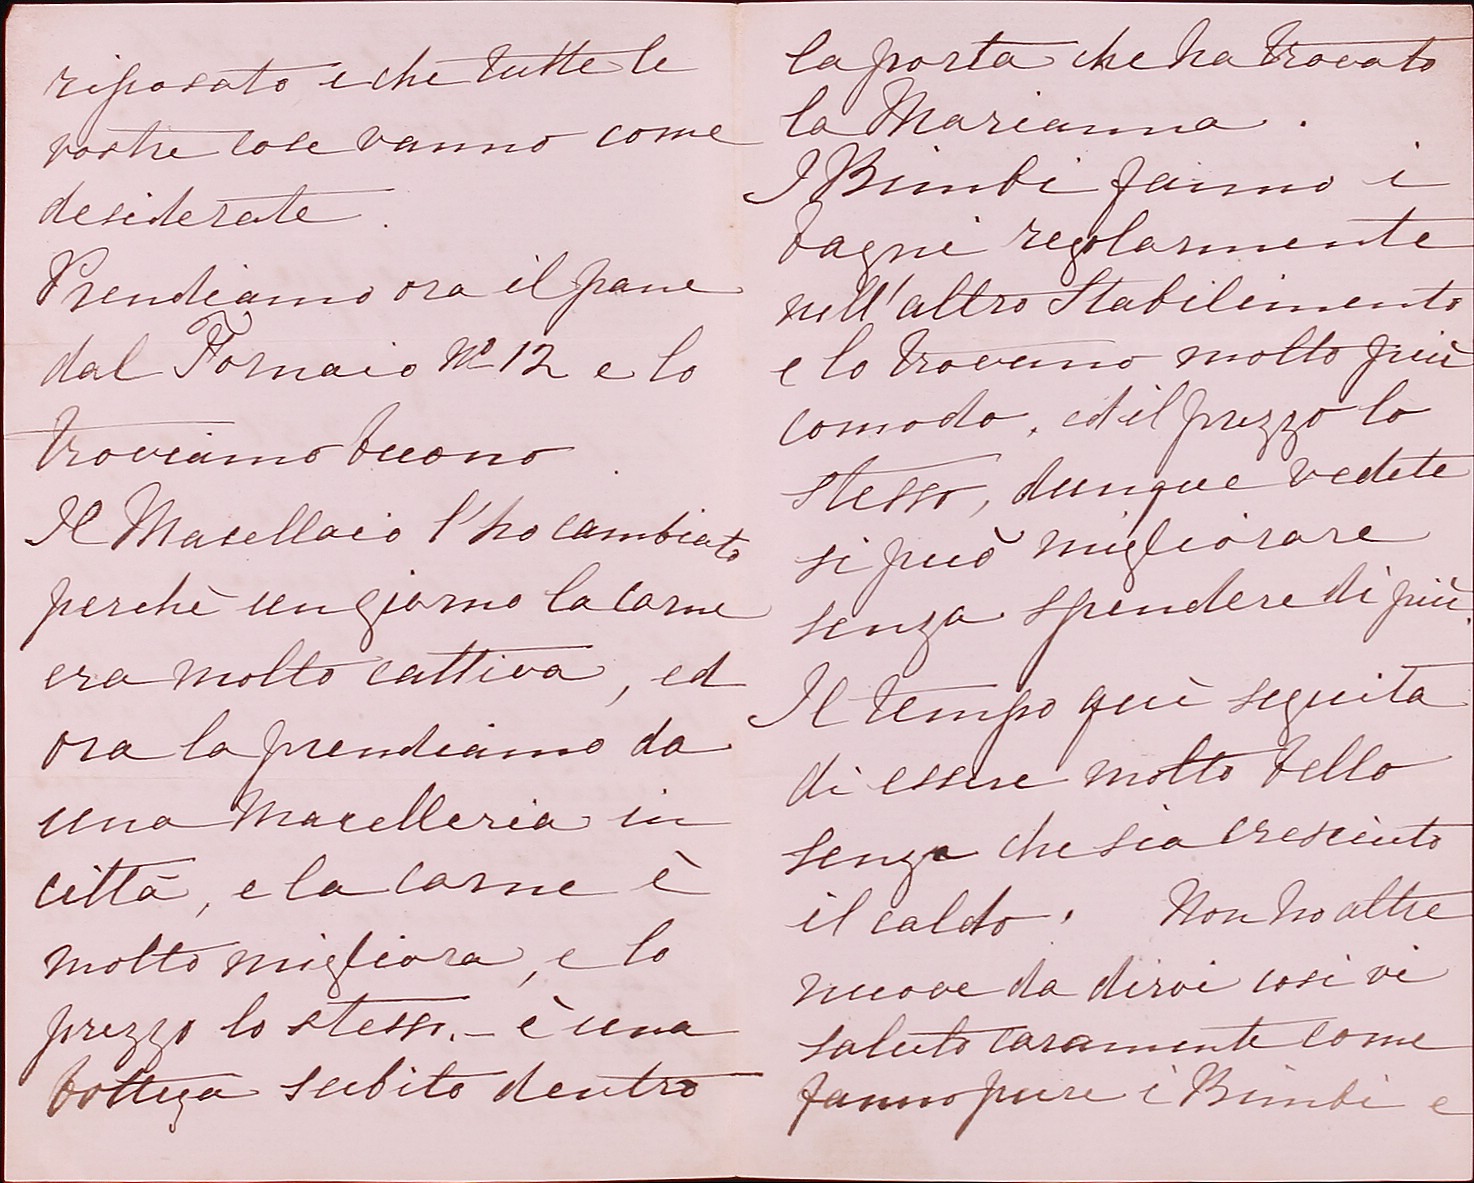 riposato e che tutte le
vostre cose vanno come
desiderate.
Prendiamo ora il pane
dal Fornaio No 12 e lo
troviamo buono.
Il Macellaio l'ho cambiato
perchè un giorno la carne
era molto cattiva, ed
ora la prendiamo da
una Macelleria in
città, e la carne è
molto migliora, e lo
prezzo lo stesso. – è una
bottega subito dentro
la porta che ha trovato
la Marianna.
I Bimbi fanno i
bagni regolarmente
nell'altro Stabilimento
e lo trovano molto più
comodo, ed il prezzo lo
stesso, dunque vedete
si può migliorare
senza spendere di più.
Il tempo quì seguita
di essere molto bello
senza che sia cresciuto
il caldo. Non ho altre
nuove da dirvi così vi
saluto caramente come
fanno pure i Bimbi e